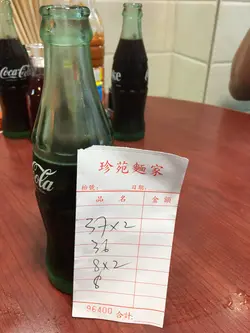 Coca-Cola
Cola
珍苑麵家
檯號: 日期:
品名 金額
37×2
36
8×2
8
96400 合計: